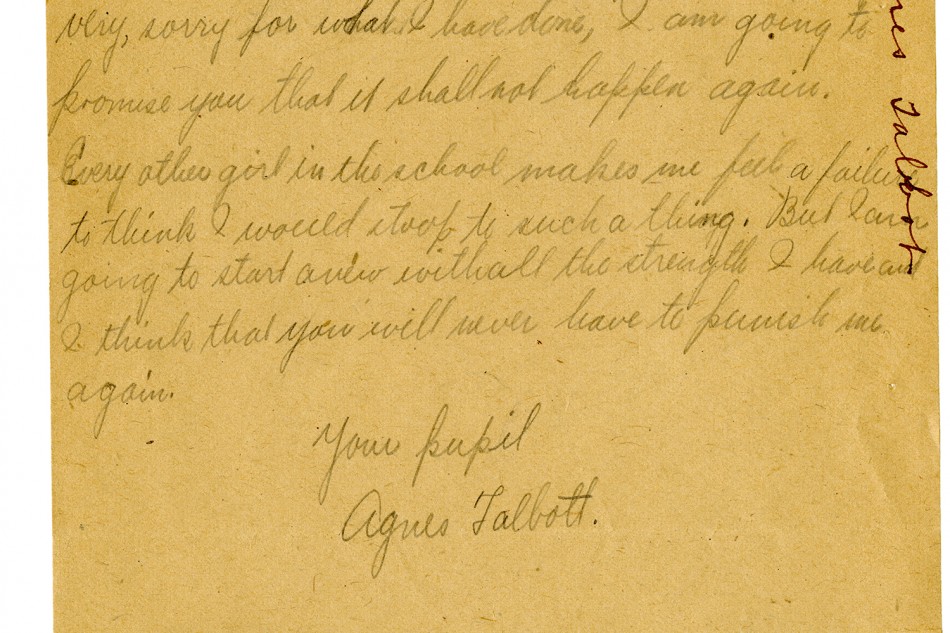 very, sorry for what I have done, I am going to
promise you that it shall not happen again.
Every other girl in the school makes me feel a failure
to think I would stoop to such a thing. But I am
going to start anew with all the strength I have and
I think that you will never have to punish me
again.
Your pupil
Agnes Talbott.
nes Talbot